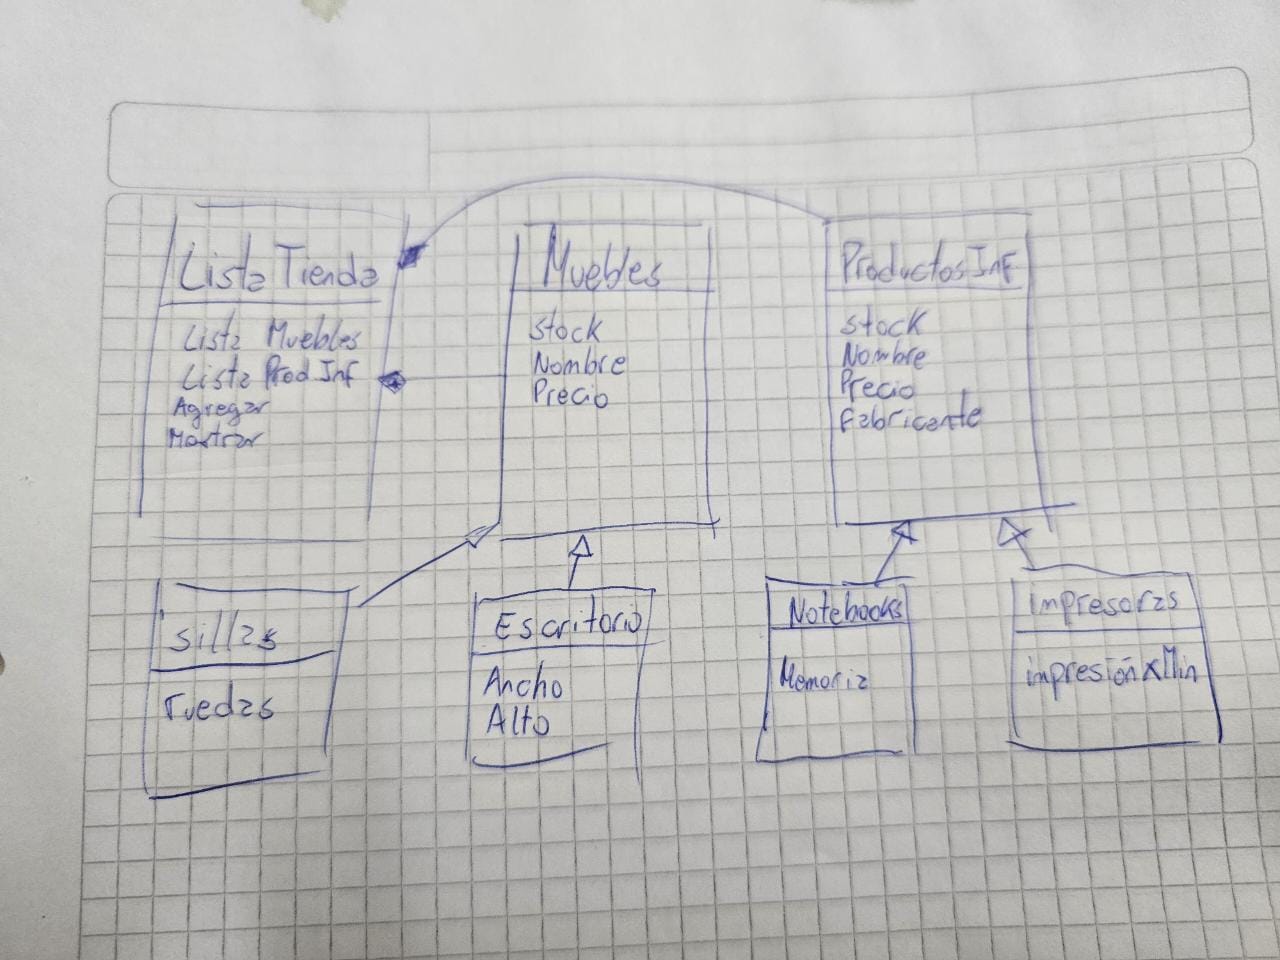 Lista Tienda
Lista Muebles
Lista Prod Inf
Agregar
Mostrar
Muebles
stock
Nombre
Precio
Productos Inf
stock
Nombre
Precio
Fabricante
sillas
ruedas
Escritorio
Ancho
Alto
Notebooks
Memoria
Impresoras
impresiónxMin